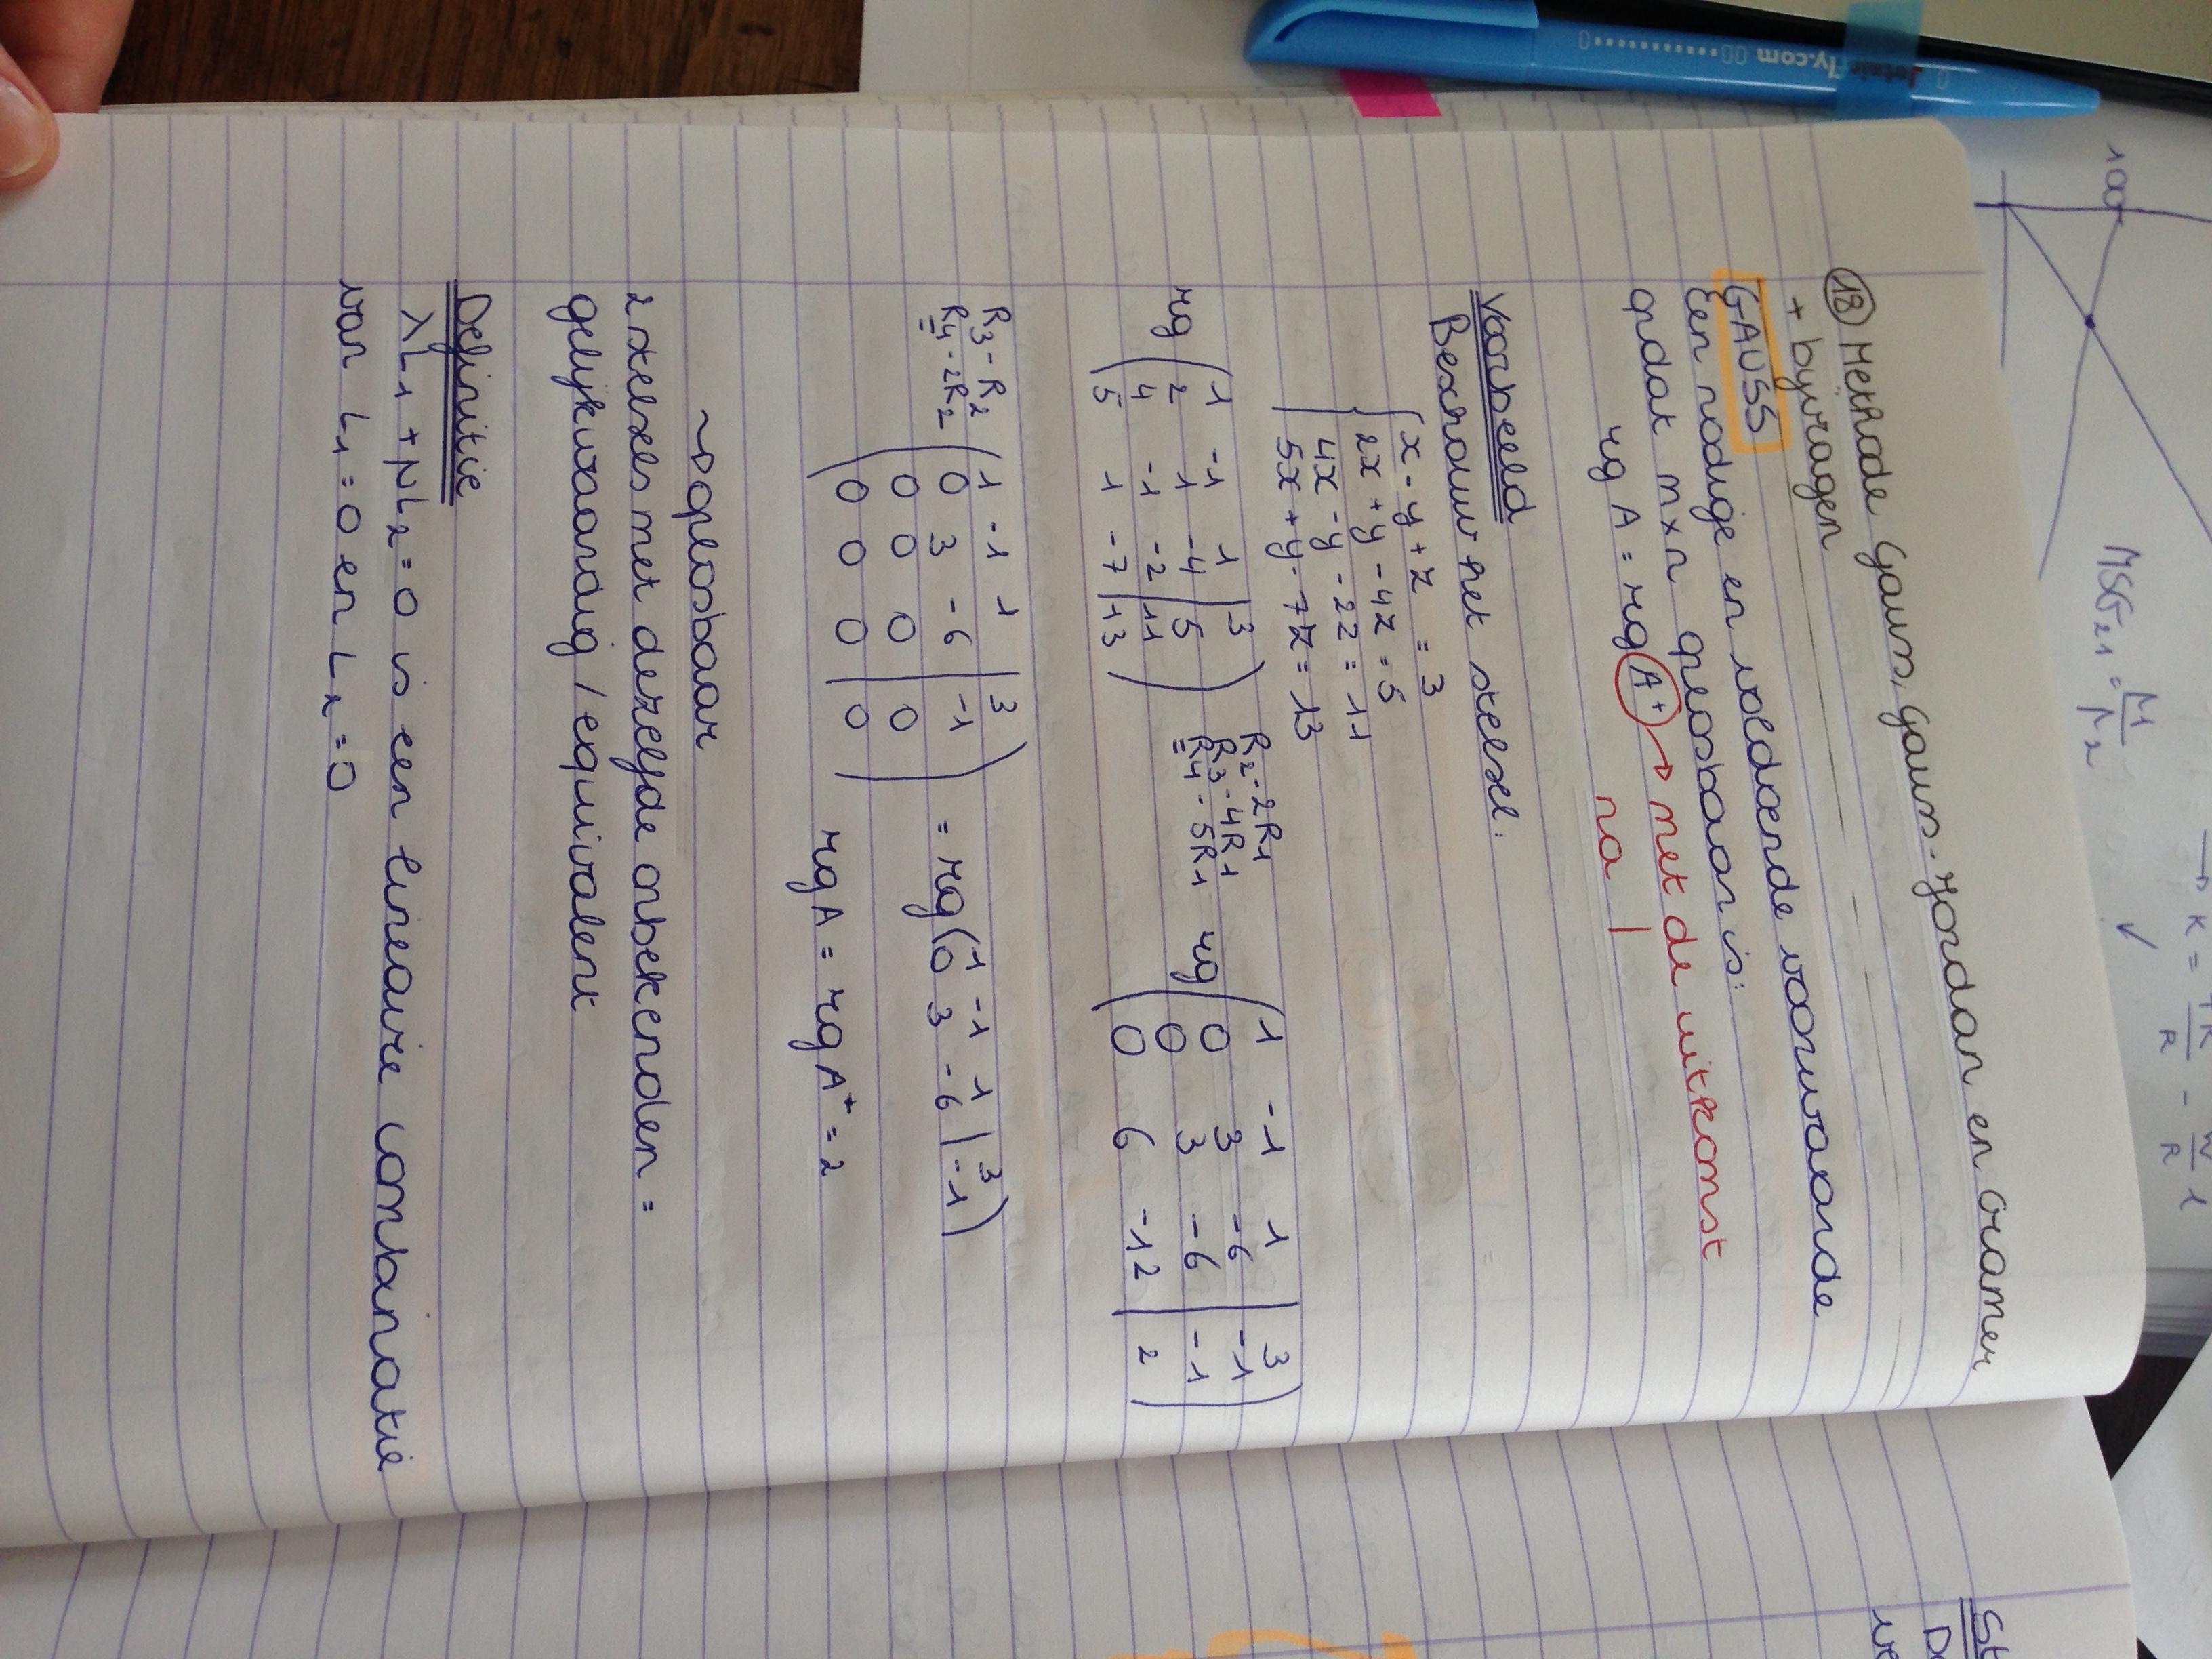 18 Methode Gauss, Gauss-Jordan en Cramer
+ bijvragen
GAUSS
Een nodige en voldoende voorwaarde
opdat m×n oplosbaar is:
rg A = rg A⁺ → met de uitkomst
na |
Voorbeeld
Beschouw het stelsel:
x - y + z = 3
2x + y - 4z = 5
4x - y - 2z = 11
5x + y - 7z = 13
rg ( 1 -1 1 | 3
2 1 -4 | 5
4 -1 -2 | 11
5 1 -7 | 13 )
R2 - 2R1
R3 - 4R1
R4 - 5R1
=
rg ( 1 -1 1 | 3
0 3 -6 | -1
0 3 -6 | -1
0 6 -12 | 2 )
R3 - R2
R4 - 2R2
=
( 1 -1 1 | 3
0 3 -6 | -1
0 0 0 | 0
0 0 0 | 0 )
= rg ( 1 -1 1 | 3
0 3 -6 | -1 )
rg A = rg A⁺ = 2
→ oplosbaar
2 stelsels met dezelfde onbekenden =
gelijkwaardig / equivalent
Definitie
λL₁ + μL₂ = 0 is een lineaire combinatie
van L₁ = 0 en L₂ = 0
Jetairfly.com
100